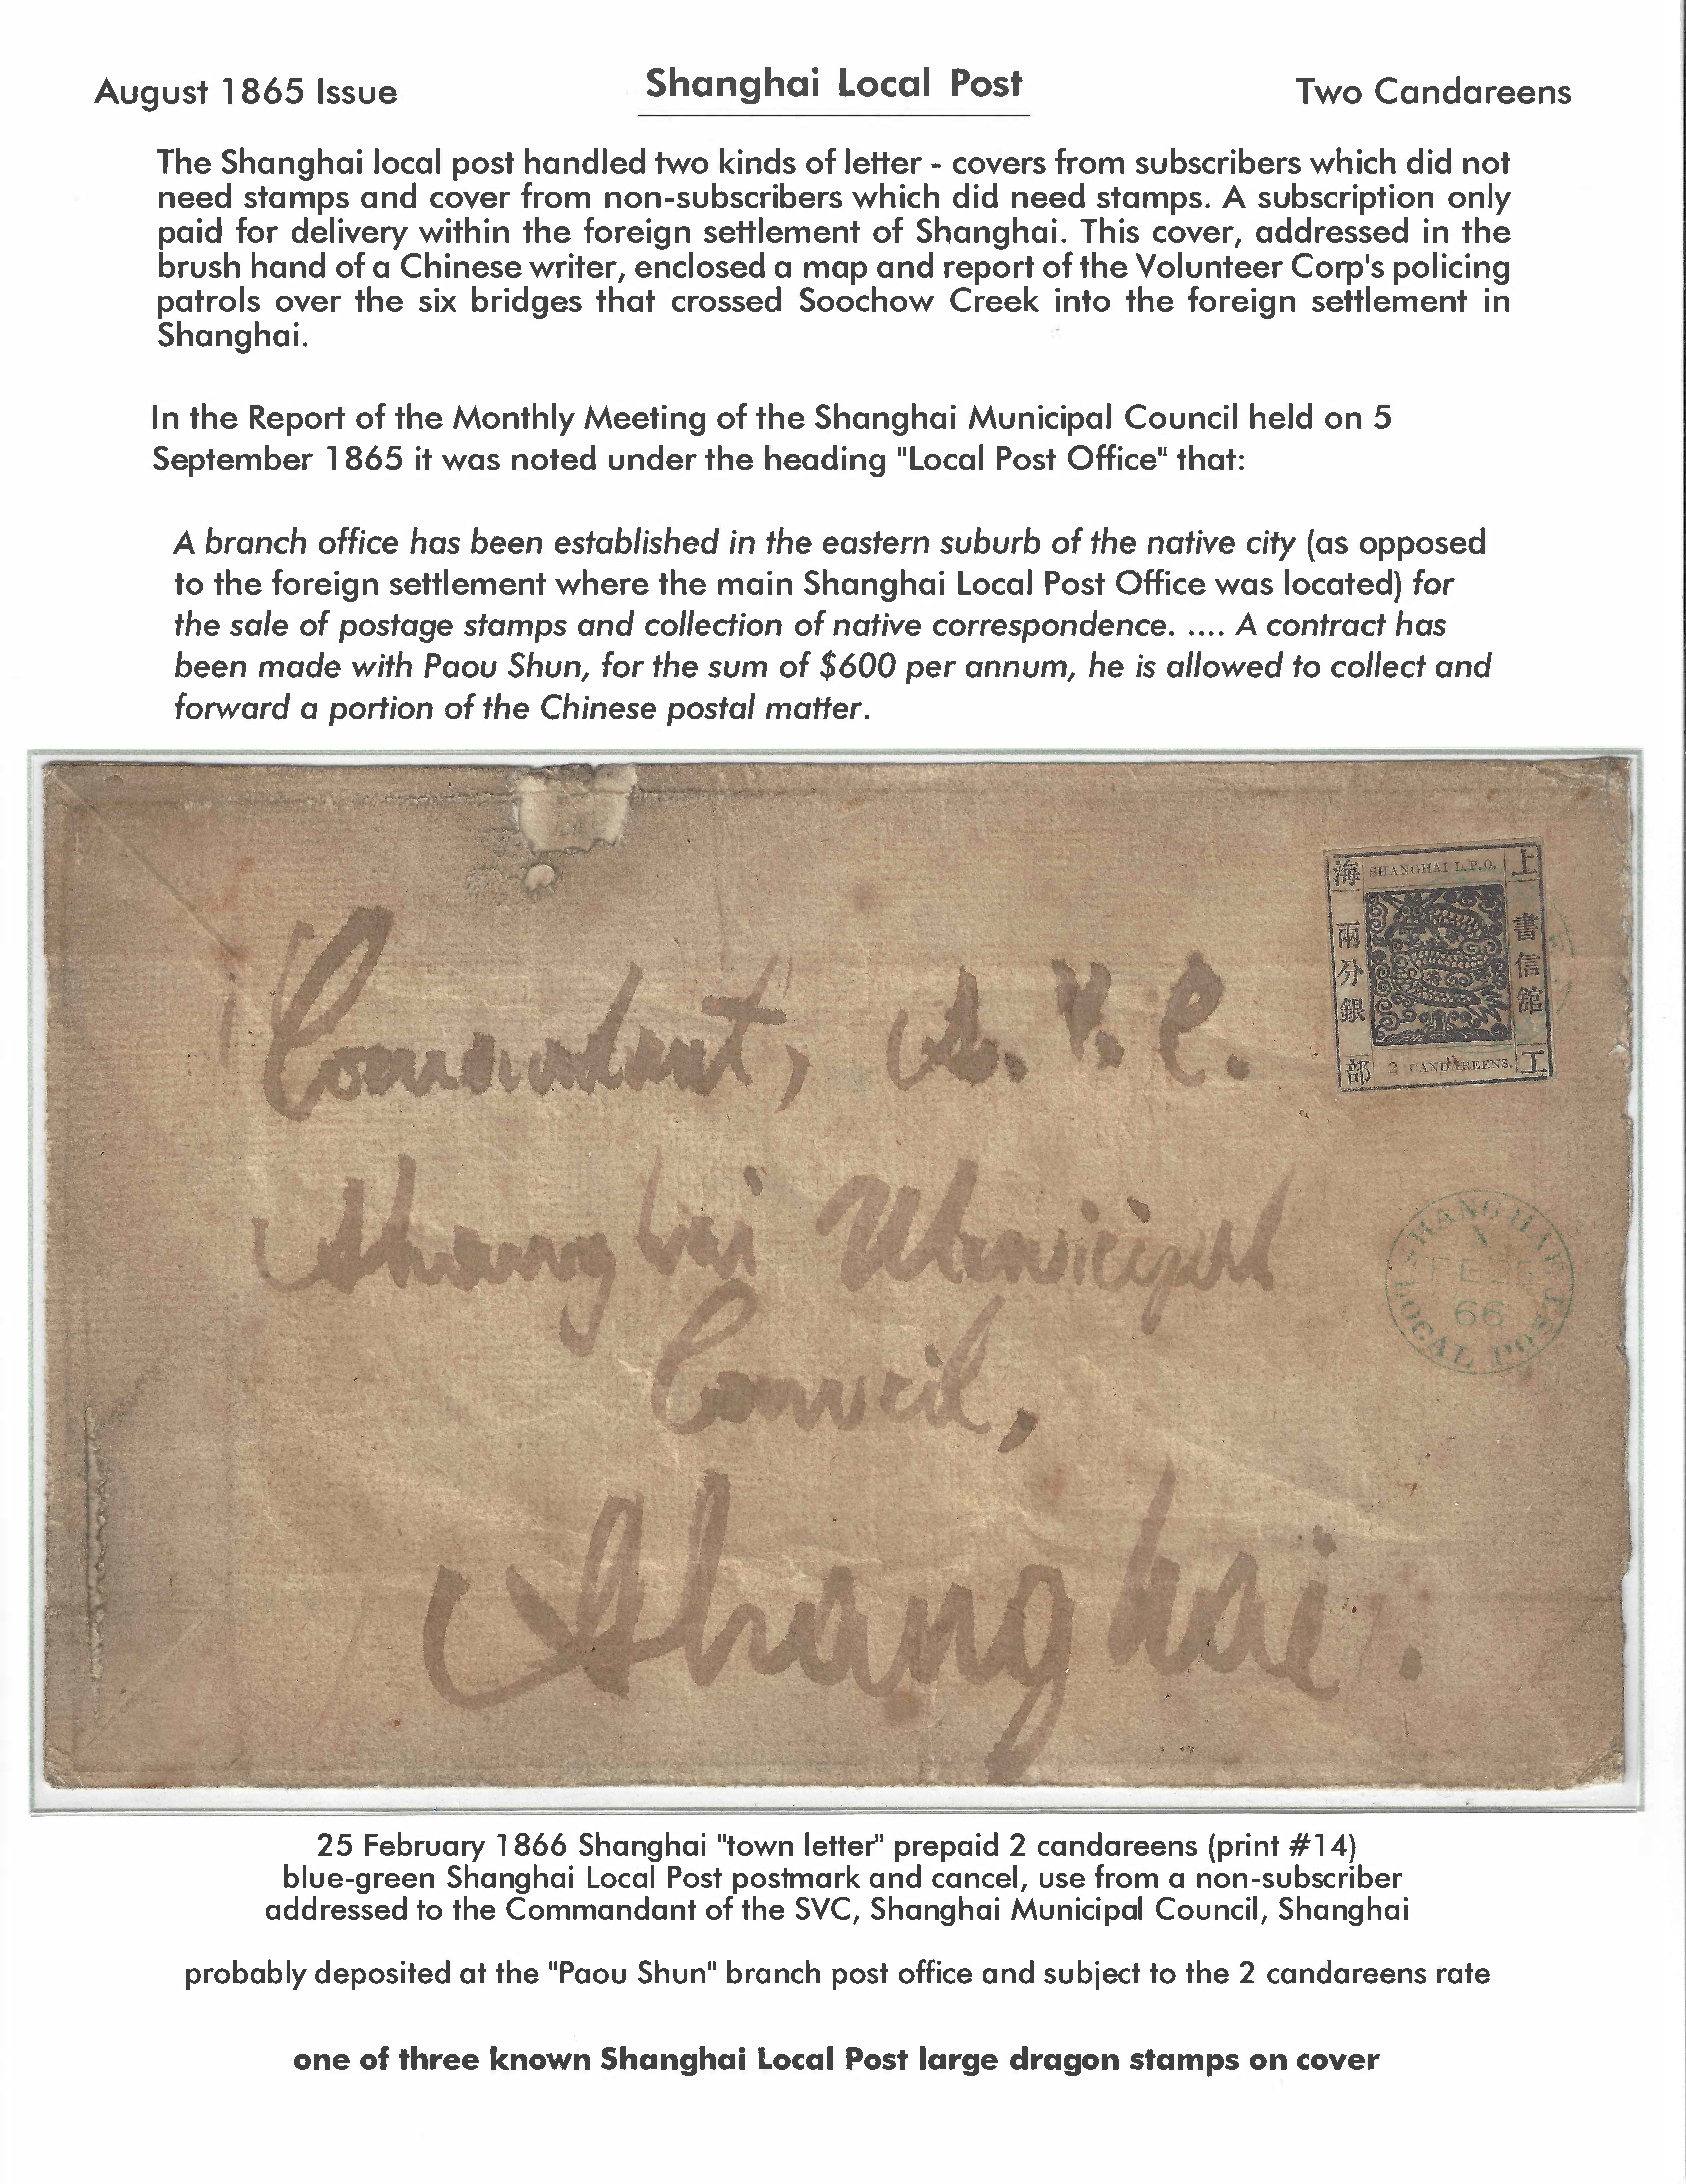 August 1865 Issue
Shanghai Local Post
Two Candareens
The Shanghai local post handled two kinds of letter - covers from subscribers which did not
need stamps and cover from non-subscribers which did need stamps. A subscription only
paid for delivery within the foreign settlement of Shanghai. This cover, addressed in the
brush hand of a Chinese writer, enclosed a map and report of the Volunteer Corp's policing
patrols over the six bridges that crossed Soochow Creek into the foreign settlement in
Shanghai.
In the Report of the Monthly Meeting of the Shanghai Municipal Council held on 5
September 1865 it was noted under the heading "Local Post Office" that:
A branch office has been established in the eastern suburb of the native city (as opposed
to the foreign settlement where the main Shanghai Local Post Office was located) for
the sale of postage stamps and collection of native correspondence. .... A contract has
been made with Paou Shun, for the sum of $600 per annum, he is allowed to collect and
forward a portion of the Chinese postal matter.
Commandant, S. V. C.
Shanghai Municipal
Council,
Shanghai.
SHANGHAI L.P.O.
上
書信館
工
海
兩分銀
部
2 CANDAREENS.
SHANGHAI
A
FE 25
66
LOCAL POST
25 February 1866 Shanghai "town letter" prepaid 2 candareens (print #14)
blue-green Shanghai Local Post postmark and cancel, use from a non-subscriber
addressed to the Commandant of the SVC, Shanghai Municipal Council, Shanghai
probably deposited at the "Paou Shun" branch post office and subject to the 2 candareens rate
one of three known Shanghai Local Post large dragon stamps on cover